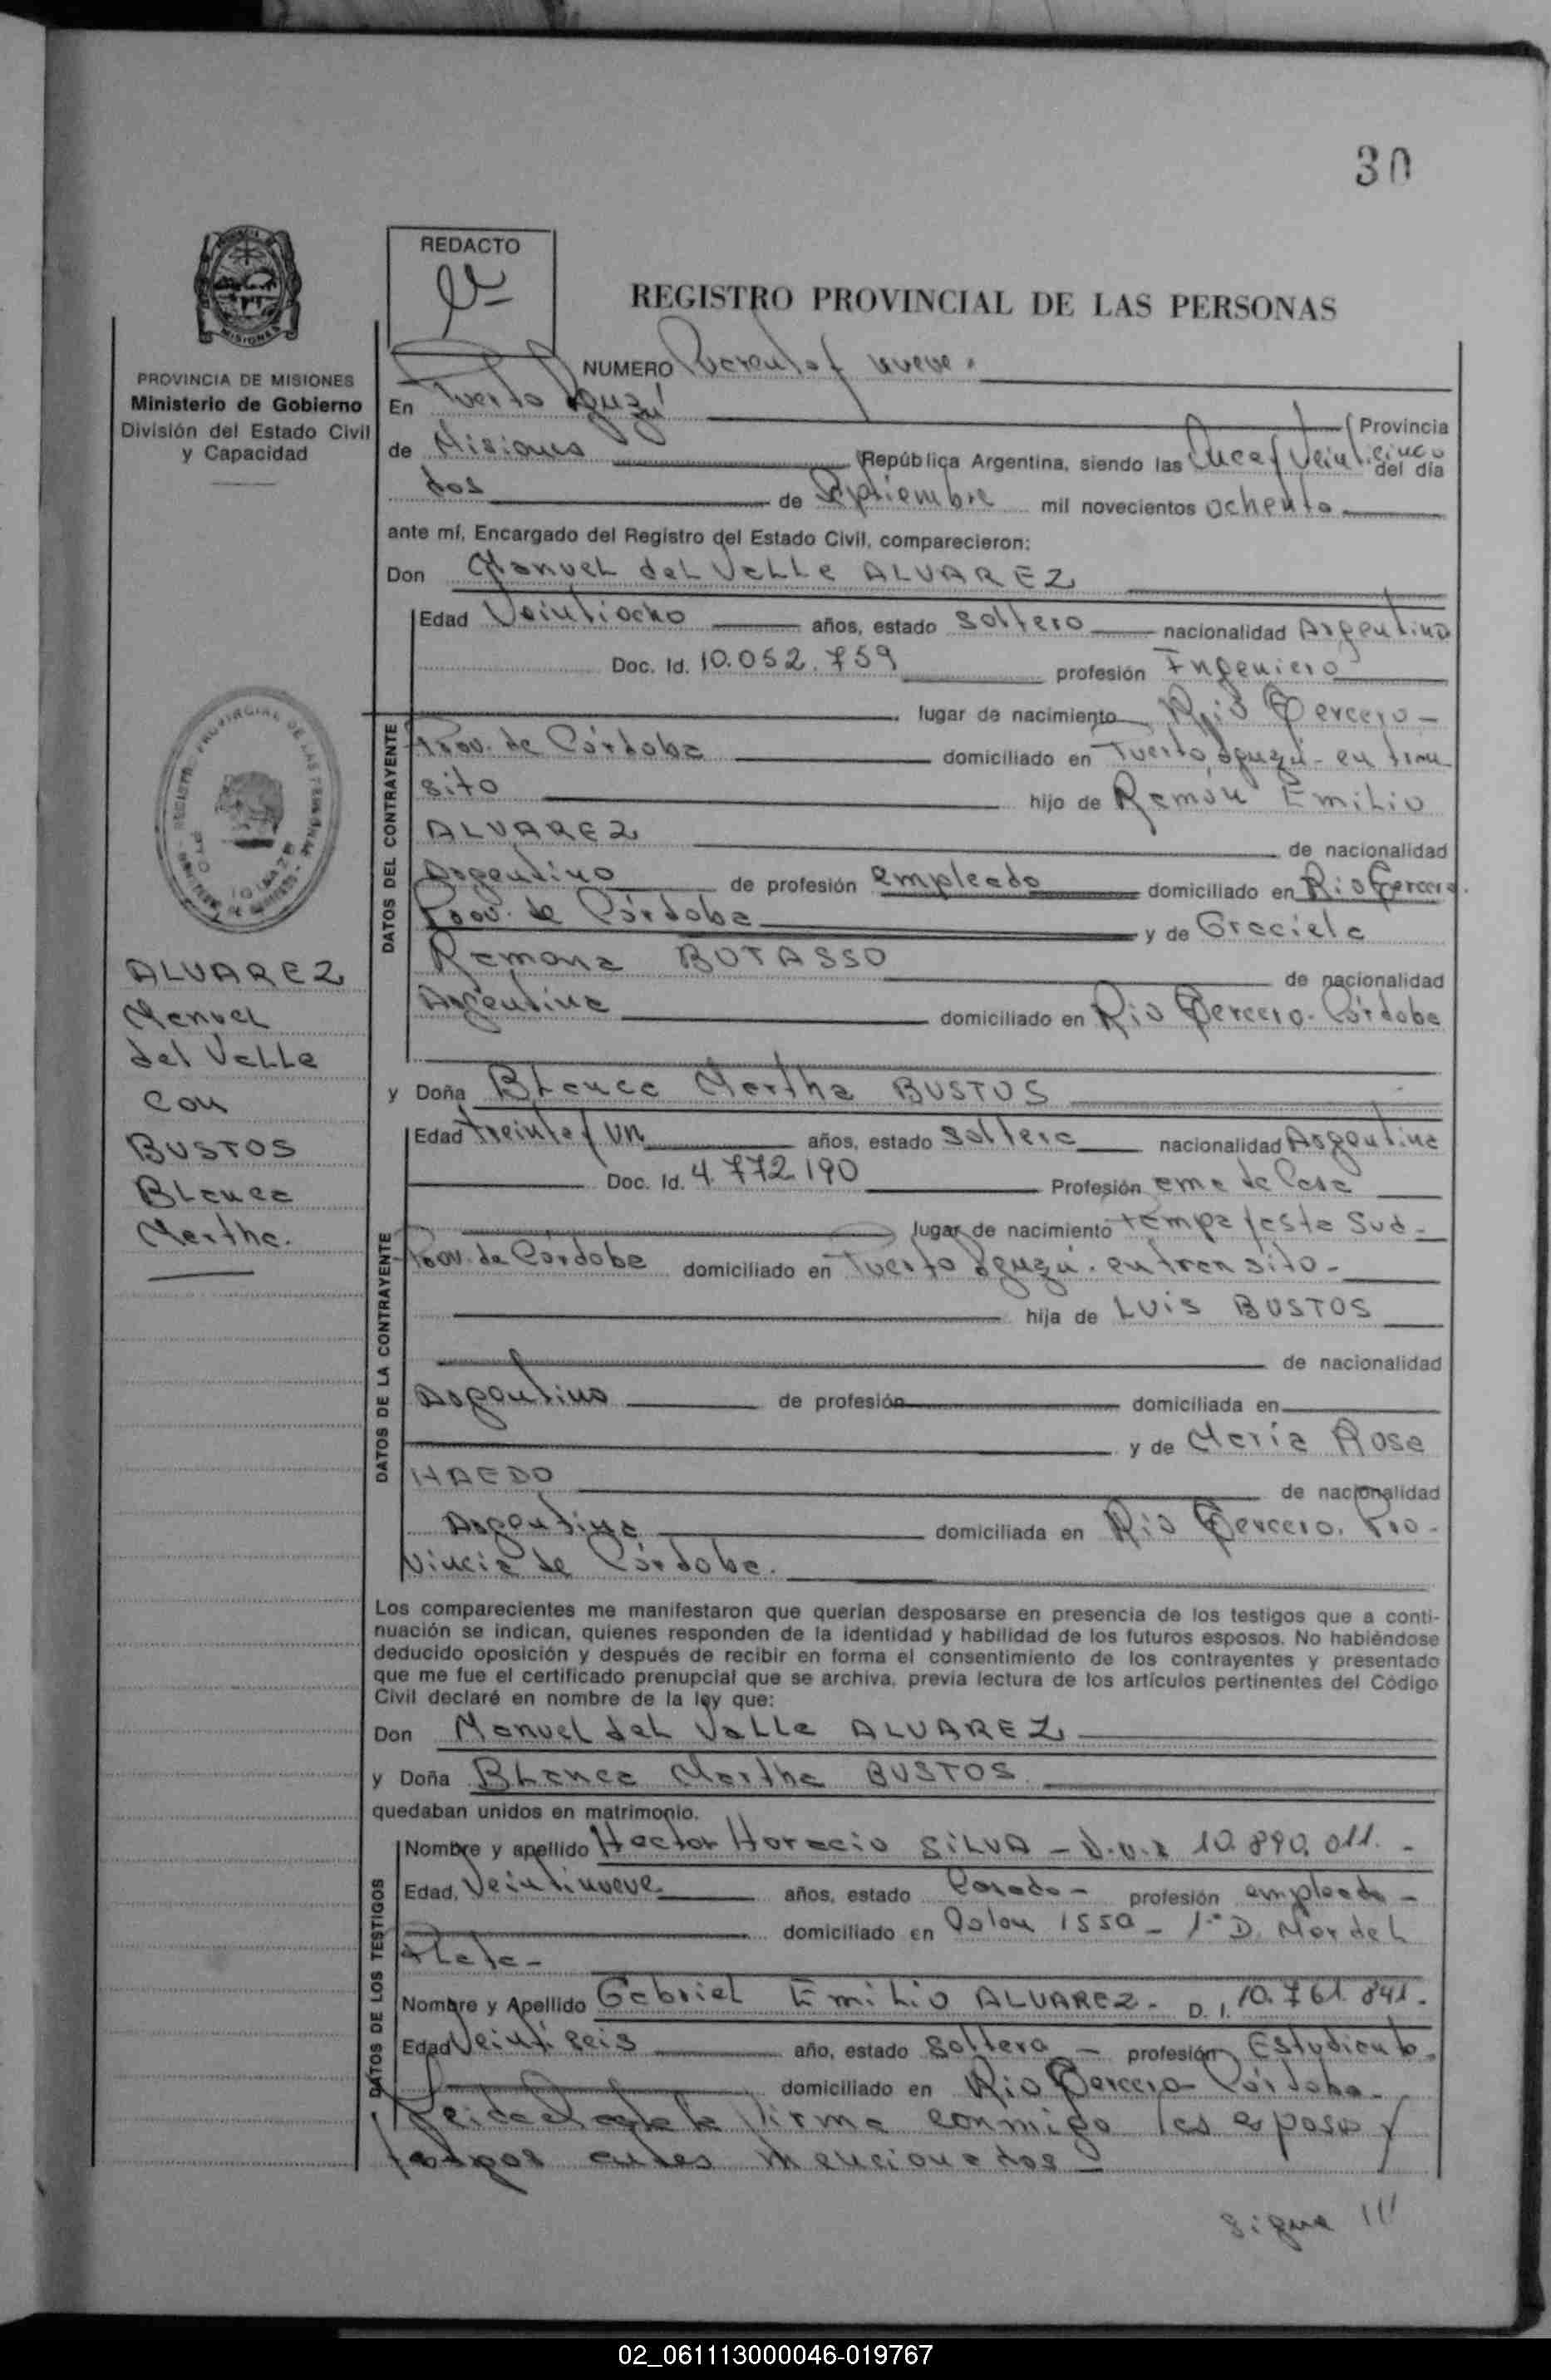 30
REDACTO
REGISTRO PROVINCIAL DE LAS PERSONAS
PROVINCIA DE MISIONES
Ministerio de Gobierno
División del Estado Civil
y Capacidad
ALVAREZ
Manuel
del Valle
con
BUSTOS
Blanca
Martha.
NUMERO nueve.
En Puerto Iguazú (Provincia
de Misiones República Argentina, siendo las Once y Veinticinco del día
dos de Septiembre mil novecientos ochenta
ante mí, Encargado del Registro del Estado Civil, comparecieron:
Don Manuel del Valle ALVAREZ
Edad Veintiocho años, estado soltero nacionalidad Argentina
Doc. Id. 10.052.759 profesión Ingeniero
lugar de nacimiento Rio Tercero -
DATOS DEL CONTRAYENTE
Prov. de Córdoba domiciliado en Puerto Iguazú - en tran
sito hijo de Ramón Emilio
ALVAREZ de nacionalidad
Argentino de profesión empleado domiciliado en Rio Tercero.
Prov. de Córdoba y de Graciela
Ramona BOTASSO de nacionalidad
Argentina domiciliado en Rio Tercero. Córdoba
y Doña Blanca Martha BUSTOS
Edad treinta y un años, estado soltera nacionalidad Argentina
Doc. Id. 4.772.190 Profesión ama de Casa
lugar de nacimiento Pampayasta Sud -
DATOS DE LA CONTRAYENTE
Prov. de Córdoba domiciliado en Puerto Iguazú. en transito -
hija de LUIS BUSTOS
de nacionalidad
Argentino de profesión domiciliada en
y de María Rosa
HAEDO de nacionalidad
Argentina domiciliada en Rio Tercero. Pro-
vincia de Córdoba.
Los comparecientes me manifestaron que querían desposarse en presencia de los testigos que a conti-
nuación se indican, quienes responden de la identidad y habilidad de los futuros esposos. No habiéndose
deducido oposición y después de recibir en forma el consentimiento de los contrayentes y presentado
que me fue el certificado prenupcial que se archiva, previa lectura de los artículos pertinentes del Código
Civil declaré en nombre de la ley que:
Don Manuel del Valle ALVAREZ
y Doña Blanca Martha BUSTOS
quedaban unidos en matrimonio.
DATOS DE LOS TESTIGOS
Nombre y apellido Hector Horacio SILVA - D.N.I 10.890.011. -
Edad, Veintinueve años, estado Casado - profesión empleado -
domiciliado en Colon 1550 - 1º D. Mar del
Plata -
Nombre y Apellido Gabriel Emilio ALVAREZ - D. I. 10.761.841.
Edad Veinti seis año, estado Soltero - profesión Estudiante.
domiciliado en Rio Tercero - Córdoba -
Leida el acta la firma conmigo los esposos y
testigos antes mencionados -
sigue ///
02_061113000046-019767